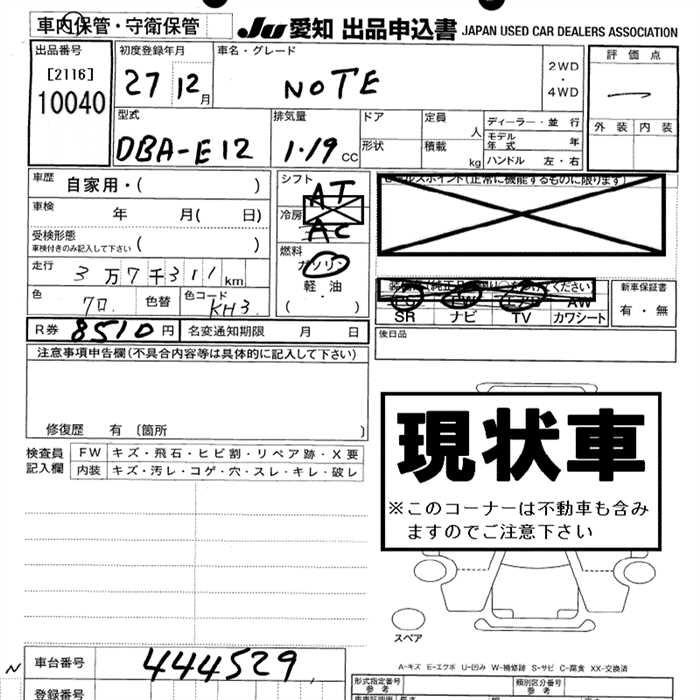 車内保管・守衛保管
JU 愛知 出品申込書 JAPAN USED CAR DEALERS ASSOCIATION
出品番号
[2116]
10040
初度登録年月
27 12月
車名・グレード
NOTE
2WD
・
4WD
評価点
外装 内装
型式
DBA-E12
排気量
1.19 cc
ドア
形状
定員 人
積載 kg
ディーラー・並行
モデル年式 年
ハンドル 左・右
車歴 自家用・( )
車検 年 月( 日)
受検形態
車検付きのみ記入して下さい ( )
走行 3万7千311km
色 クロ 色替 色コード KH3
シフト
AT
冷房
AC
燃料
ガソリン
軽油
( ・ )
セールスポイント(正常に機能するものに限ります)
PS PW エアB AW
SR ナビ TV カワシート
新車保証書
有・無
R券 8510円 名変通知期限 月 日
後日品
注意事項申告欄(不具合内容等は具体的に記入して下さい)
修復歴 有 〔箇所
現状車
※このコーナーは不動車も含み
ますのでご注意下さい
検査員記入欄
FW キズ・飛石・ヒビ割・リペア跡・X要
内装 キズ・汚レ・コゲ・穴・スレ・キレ・破レ
スペア
A-キズ E-エクボ U-凹み W-補修跡 S-サビ C-腐食 XX-交換済
N
車台番号 444529
登録番号
形式指定番号
参考
類別区分番号
参考